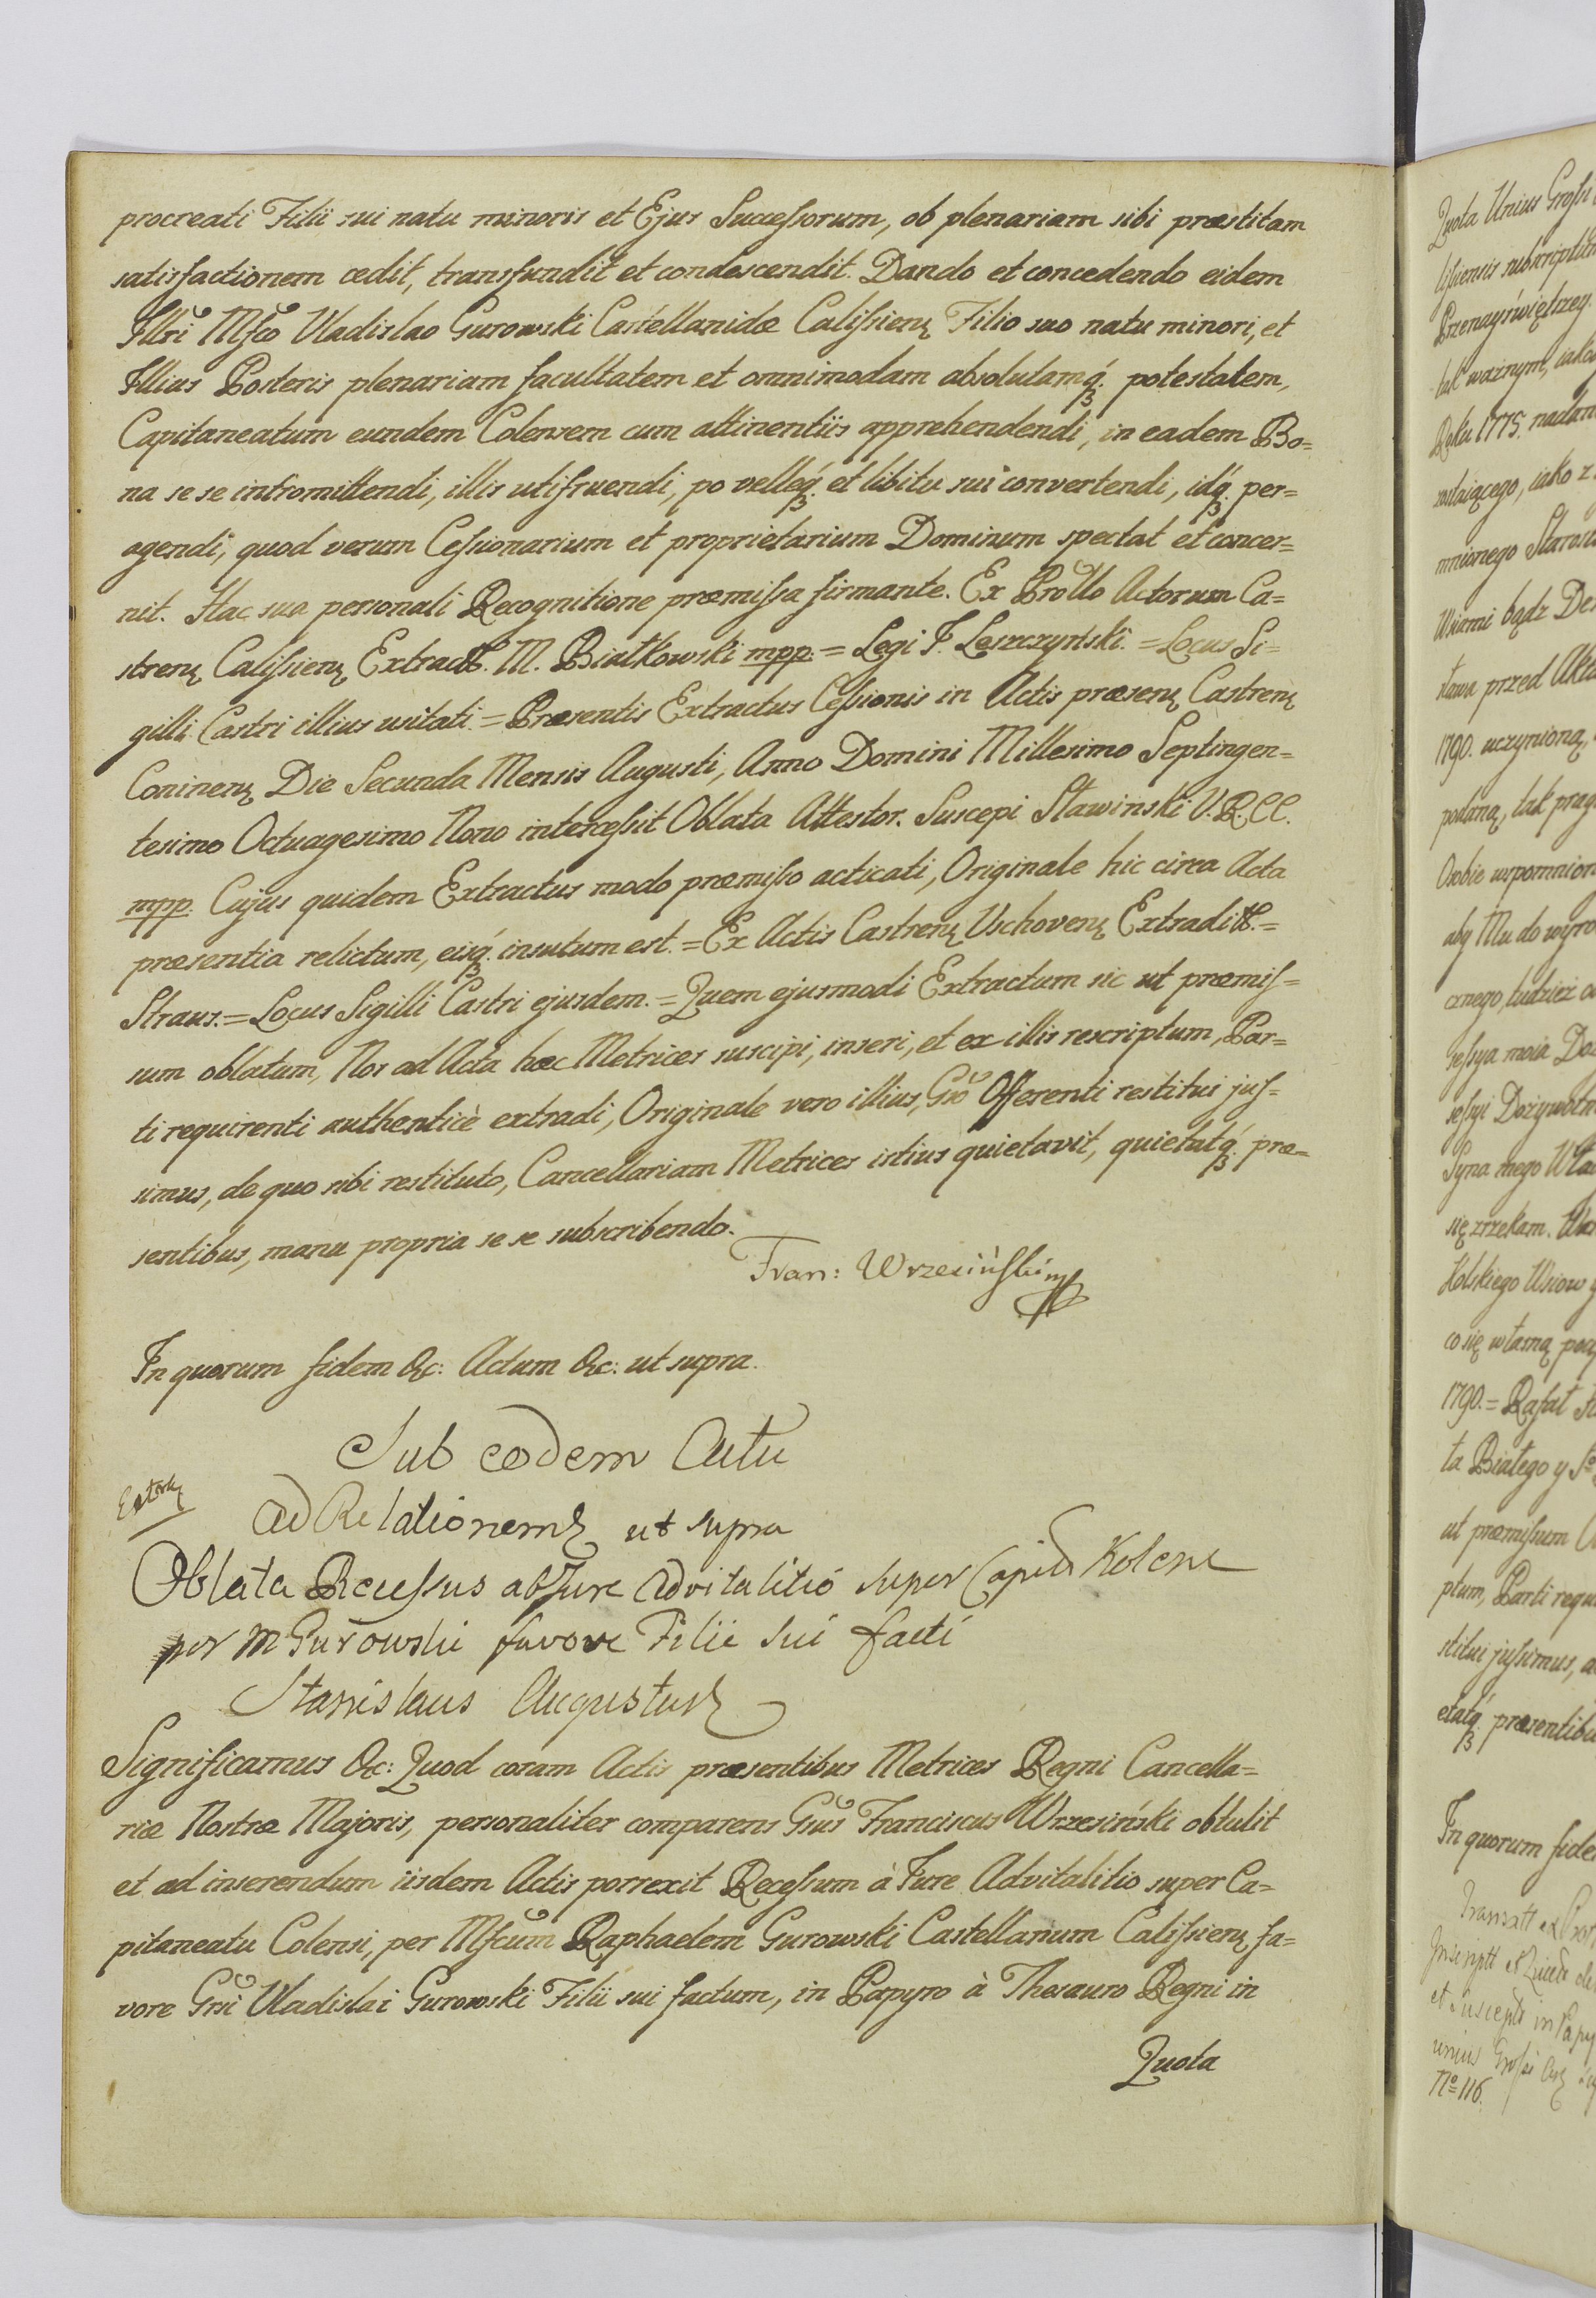 procreati Filii sui natu minoris et Ejus Successorum, ob plenariam sibi præstitam
satisfactionem cedit, transfundit et condescendit. Dando et concedendo eidem
Illri Mfco Vladislao Gurowski Castellanidæ Calissienꝫ Filio suo natu minori, et
Illius Posteris plenariam facultatem et omnimodam absolutamqꝫ. potestatem,
Capitaneatum eundem Colensem cum attinentiis apprehendendi, in eadem Bo=
na se se intromittendi, illis utifruendi, po velleqꝫ. et libitu sui convertendi, idqꝫ. per=
agendi, quod verum Cessionarium et proprietarium Dominum spectat et concer=
nit. Hac sua personali Recognitione præmissa firmante. Ex Protllo Actorum Ca=
strenꝫ Calissienꝫ Extradtt. M. Białkowski mpp. = Legi J. Leszczyński. = Locus Si=
gilli Castri illius usitati. = Præsentis Extractus Cessionis in Actis præsenꝫ Castrenꝫ
Coninenꝫ Die Secunda Mensis Augusti, Anno Domini Millesimo Septingen=
tesimo Octuagesimo Nono intercessit Oblata Attestor. Suscepi Sławinski V.R.C.C.
mpp. Cujus quidem Extractus modo præmisso acticati, Originale hic circa Acta
præsentia relictum, eisqꝫ. insutum est. = Ex Actis Castrenꝫ Vschovenꝫ Extraditt. =
Straus. = Locus Sigilli Castri ejusdem. = Quem ejusmodi Extractum sic ut præmis=
sum oblatum, Nos ad Acta hæc Metrices suscipi, inseri, et ex illis rescriptum, Par=
ti requirenti authenticè extradi, Originale vero illius, Gso Offerenti restitui jus=
simus, de quo sibi restituto, Cancellariam Metrices istius quietavit, quietatqꝫ. præ=
sentibus, manu propria se se subscribendo.
Fran: Wrzesiński mp
In quorum fidem &c: Actum &c: ut supra.
Sub eodem Actu
Ad Relationemꝫ ut supra
Oblata Recessus ab Jure Advitalitio super Capitu Kolens
per M Gurowski favore Filii sui facti
Stanislaus Augustusꝫ
Significamus &c: Quod coram Actis præsentibus Metrices Regni Cancella=
riæ Nostræ Majoris, personaliter comparens Gsus Franciscus Wrzesiński obtulit
et ad inserendum iisdem Actis porrexit Recessum à Jure Advitalitio super Ca=
pitaneatu Colensi, per Mfcum Raphaelem Gurowski Castellanum Calissienꝫ fa=
vore Gsi Vladislai Gurowski Filii sui factum, in Papyro à Thesauro Regni in
Quota
Quota Unius Grossi
lissiensis subscriptam
Przenayświętszey
tak ważnym, iako
Roku 1775. nadan
zostaiącego, iako z
mnionego Starost
Wsiami bądz De
stawa przed Akta
1790. uczynioną,
podaną, tak prag
Osobie wspomnion
aby Mu do wyro
cznego, tudzież
ssessya moia Do
ssessyi Dożywotn
Syna mego Wła
się zrzekam.
Kolskiego Wsiow y
co się własną
1790. = Rafał
ta Białego y S
ut præmissum
ptum, Parti requ
stitui jussimus,
etatqꝫ. præsentibu
In quorum fide
et suscept in Papy
unius Grossi
No 116.